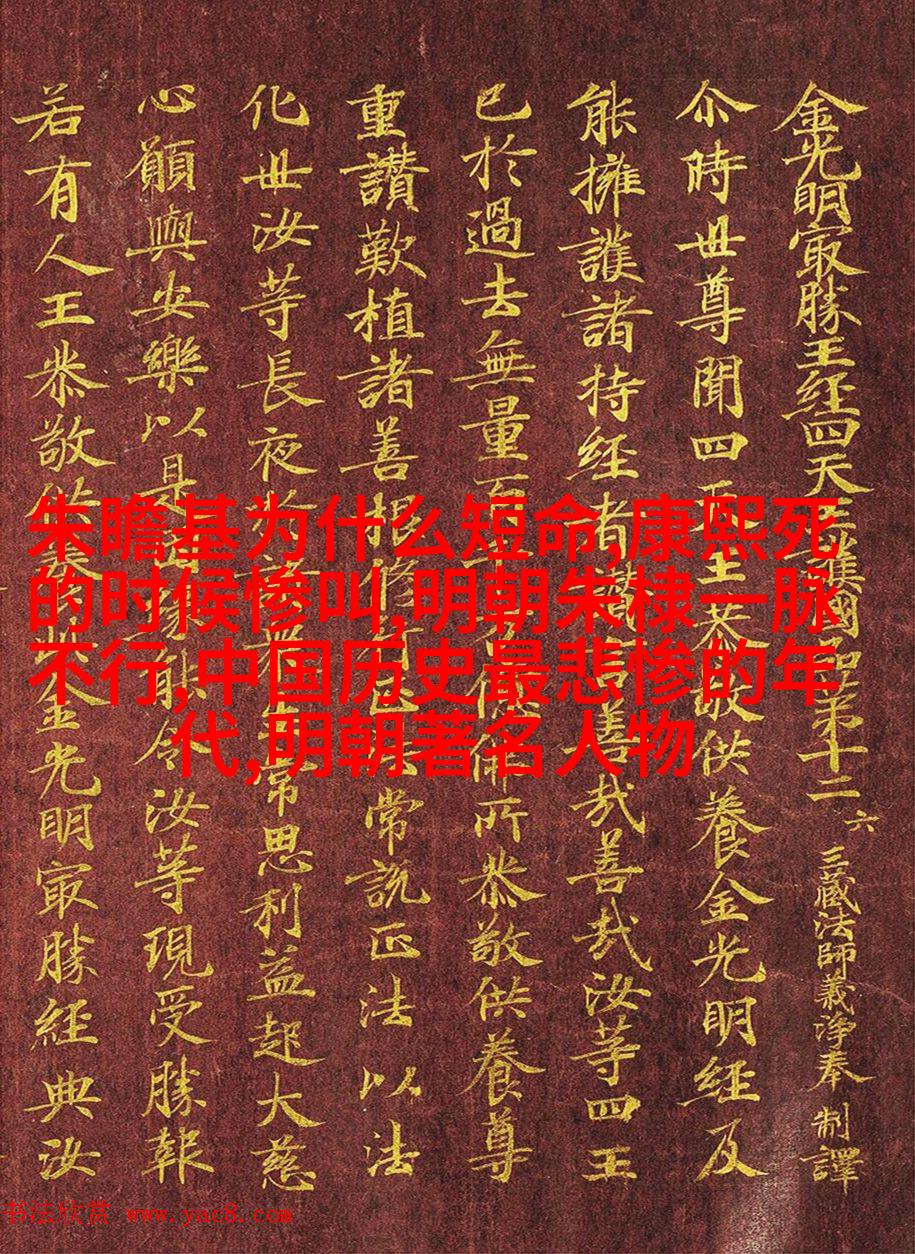 金光明冣勝王経四天王護國品第十二 六 三藏法師義淨奉 制譯
尒時世尊聞四天王恭敬供養金光明経及
能擁護諸持経者讚言善哉善哉汝等四王
已於過去無量百佛所恭敬供養尊
重讚歎植諸善根修行正法常説正法以法
化世汝等長夜於諸常思利益起大慈
心願與安樂以是因縁能令汝等現受勝報
若有人王恭敬供養金光明冣勝経典汝
朱瞻基为什么短命,康熙死
的时候惨叫,明朝朱棣一脉
不行,中国历史最悲惨的年
代,明朝著名人物
书法欣赏 www.yac8.com